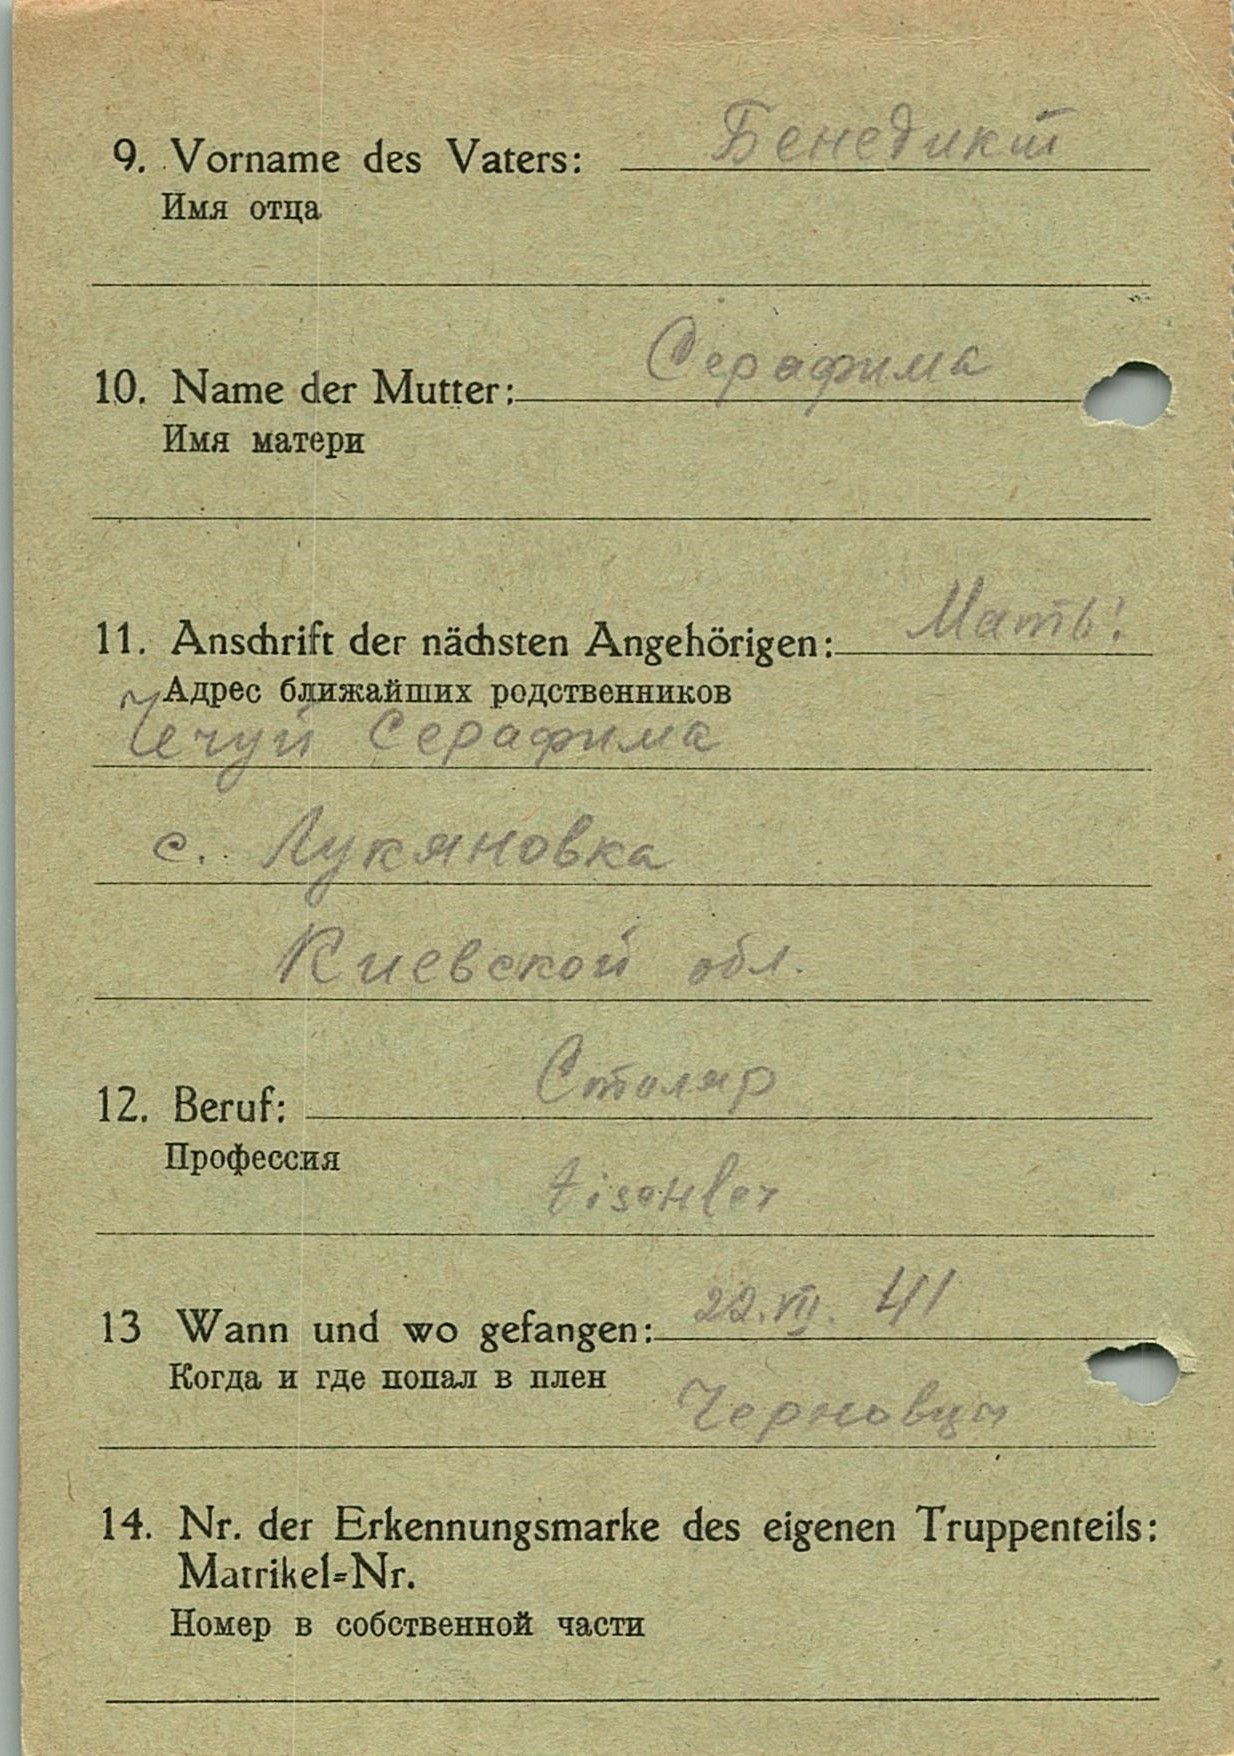 9. Vorname des Vaters: Бенедикт
Имя отца
10. Name der Mutter: Серафима
Имя матери
11. Anschrift der nächsten Angehörigen: Мать!
Адрес ближайших родственников
Чечуй Серафима
с. Лукяновка
Киевской обл.
12. Beruf: Столяр
Профессия
tischler
13 Wann und wo gefangen: 22.VII. 41
Когда и где попал в плен
Черновцы
14. Nr. der Erkennungsmarke des eigenen Truppenteils:
Matrikel=Nr.
Номер в собственной части